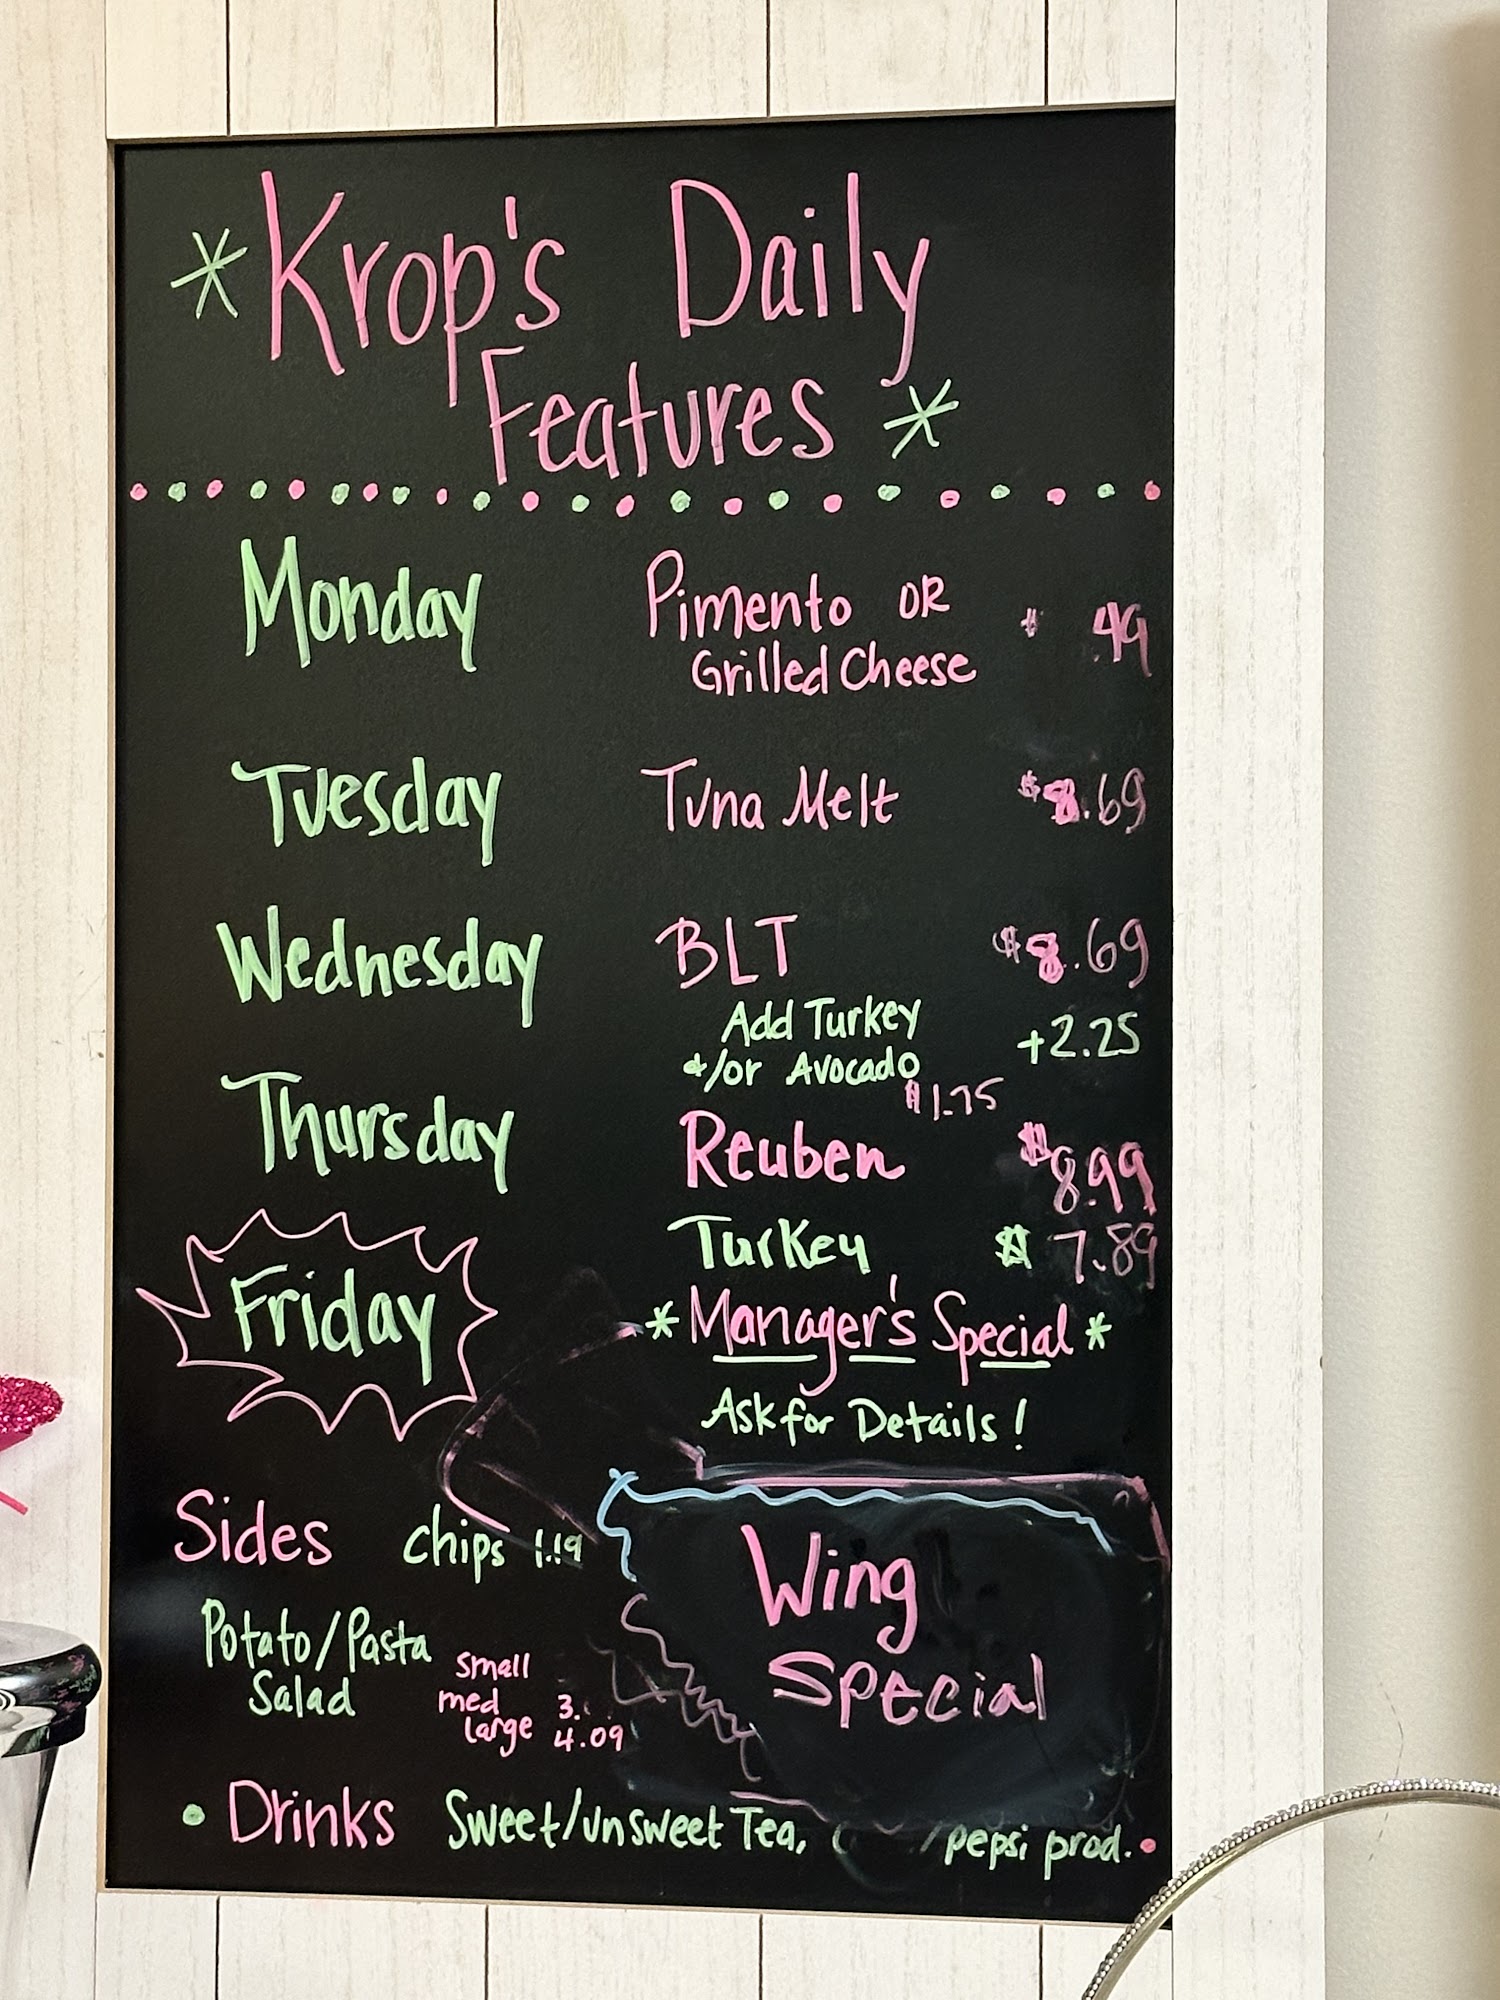 *Krop's Daily
Features*
Monday Pimento OR $ .49
Grilled Cheese
Tuesday Tuna Melt $8.69
Wednesday BLT $8.69
Add Turkey +2.25
&/or Avocado
$1.75
Thursday Reuben $8.99
Turkey $7.89
Friday *Manager's Special*
Ask for Details!
Sides Chips 1.19
Potato/Pasta
Salad
small
med 3.
large 4.09
Wing
Special
• Drinks Sweet/unsweet Tea, /pepsi prod.•